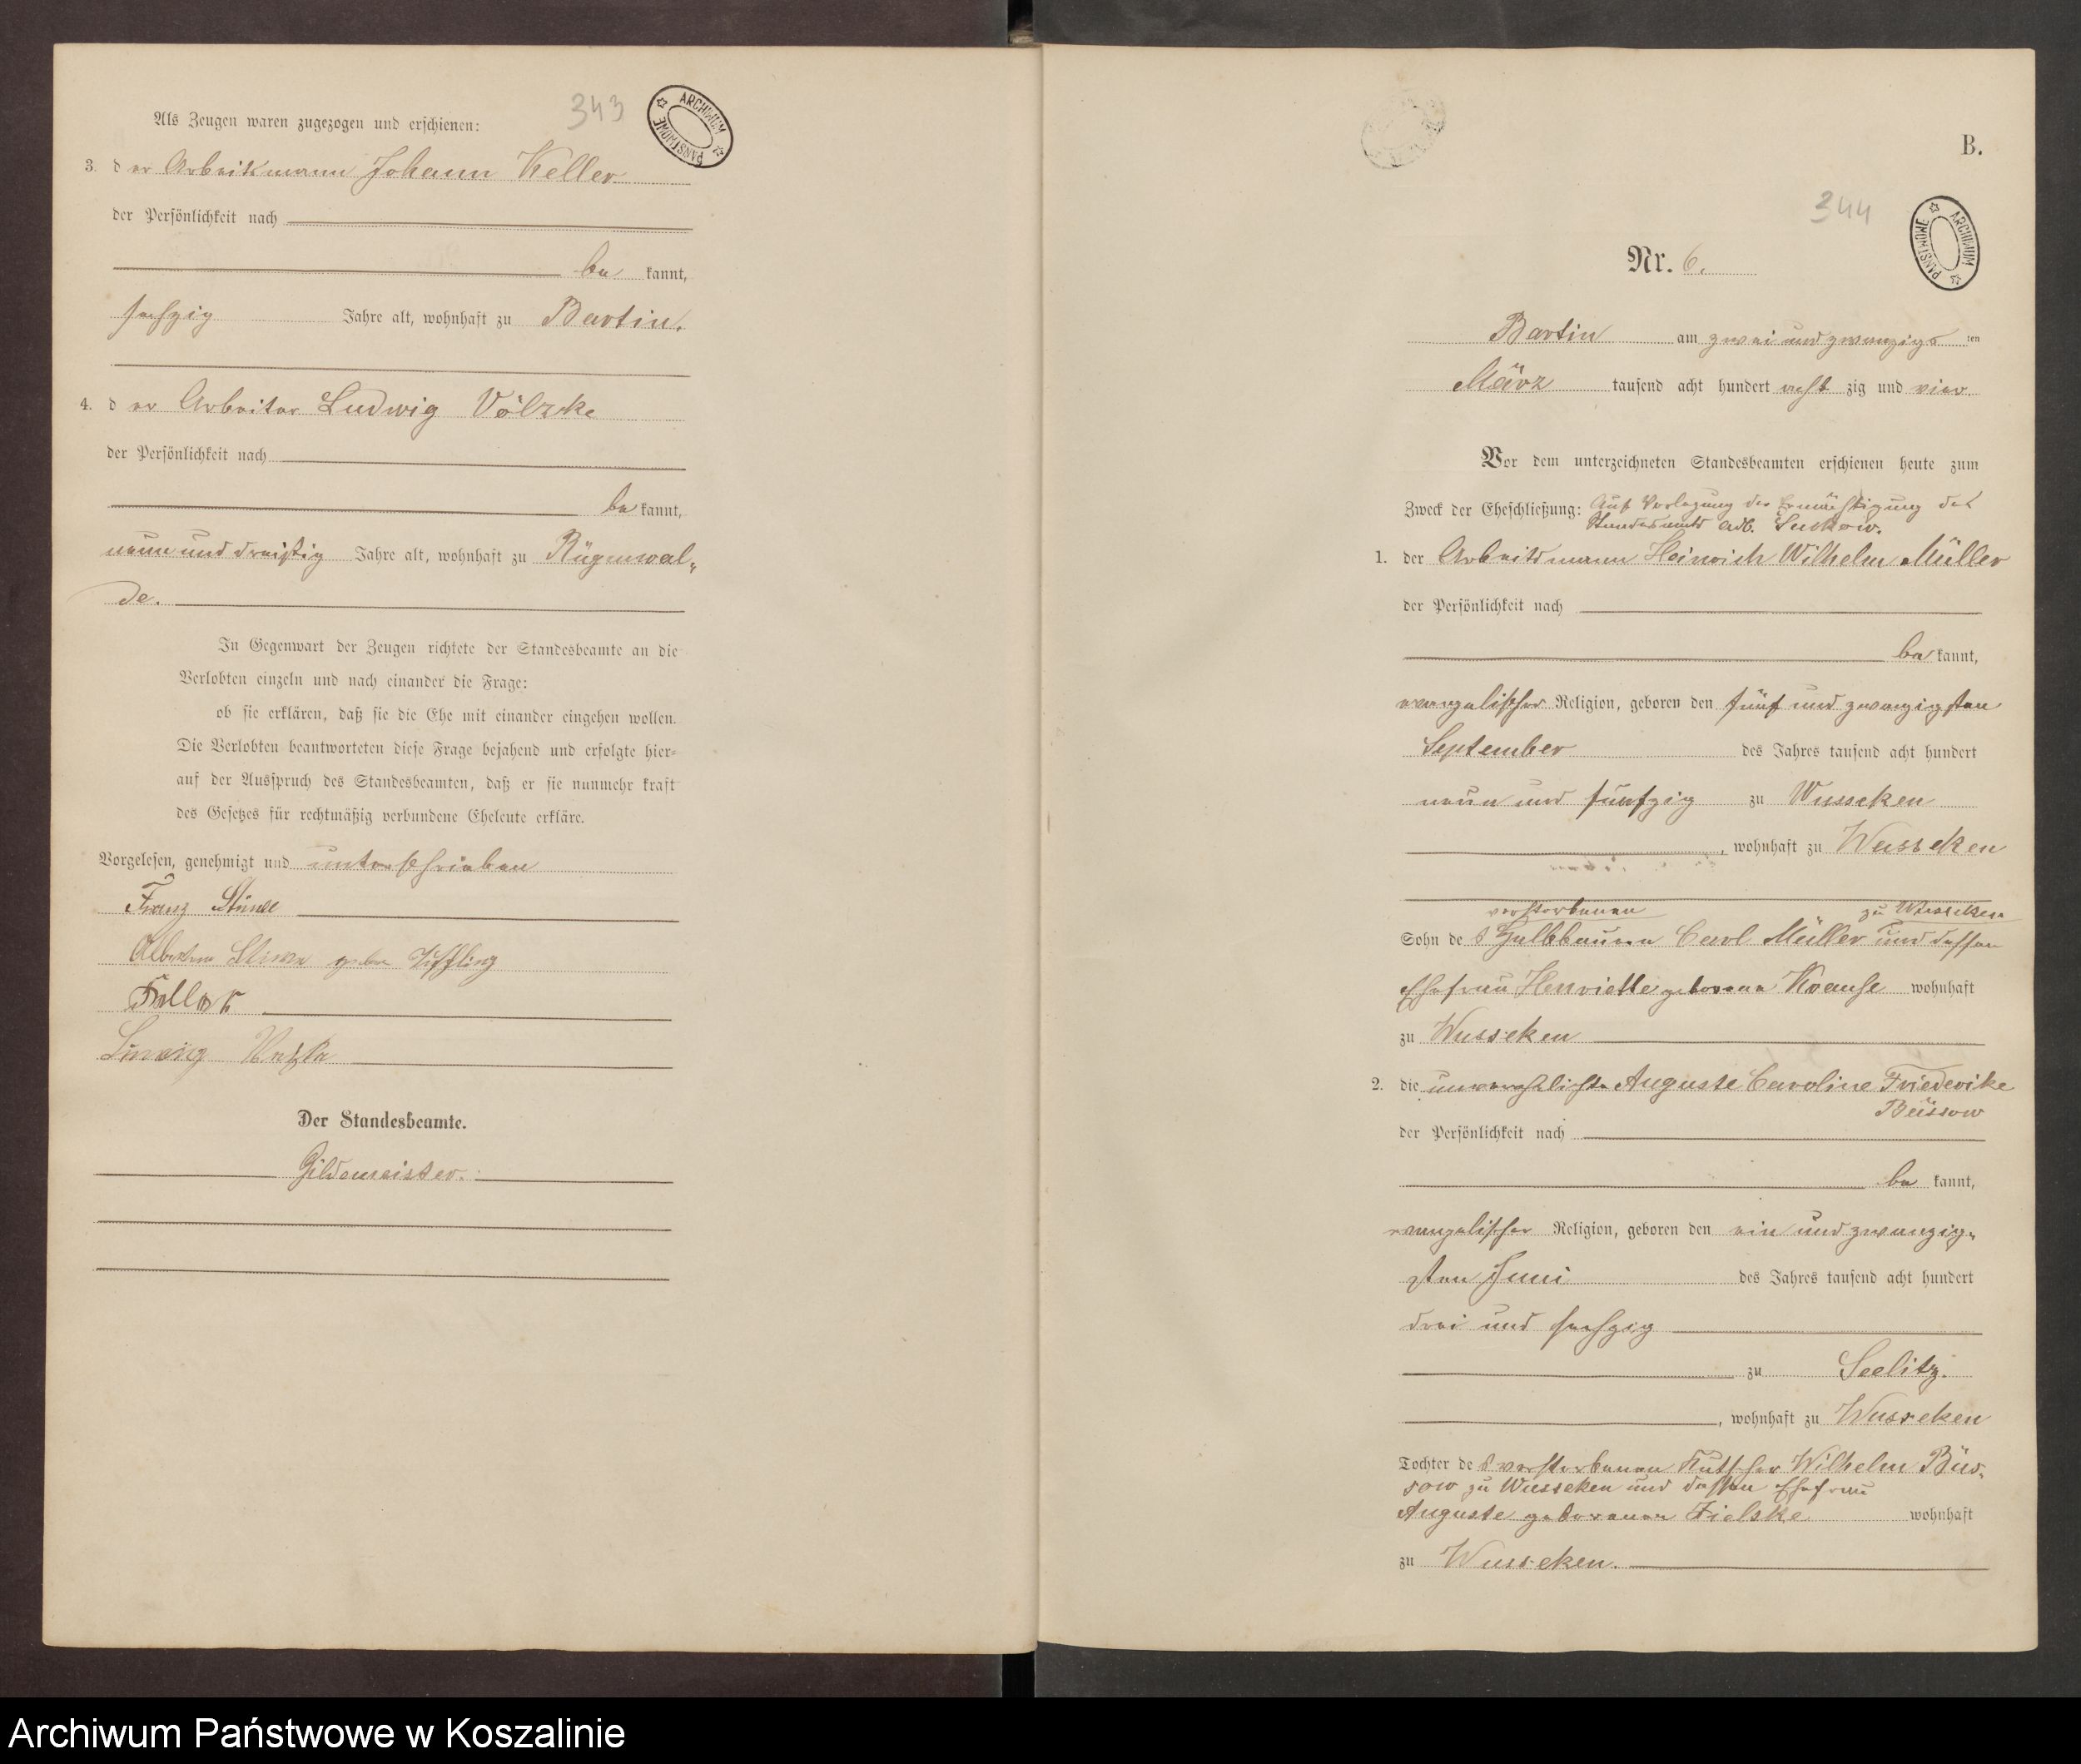 343
ARCHIWUM PAŃSTWOWE
Als Zeugen waren zugezogen und erschienen:
3. der Arbeitsmann Johann Keller
der Persönlichkeit nach
be kannt,
sechzig Jahre alt, wohnhaft zu Bartin.
4. der Arbeiter Ludwig Völzke
der Persönlichkeit nach
be kannt,
neun und dreißig Jahre alt, wohnhaft zu Rügenwal-
de.
In Gegenwart der Zeugen richtete der Standesbeamte an die
Verlobten einzeln und nach einander die Frage:
ob sie erklären, daß sie die Ehe mit einander eingehen wollen.
Die Verlobten beantworteten diese Frage bejahend und erfolgte hier-
auf der Ausspruch des Standesbeamten, daß er sie nunmehr kraft
des Gesetzes für rechtmäßig verbundene Eheleute erkläre.
Vorgelesen, genehmigt und unterschrieben
Franz
geb
Ludwig
Der Standesbeamte.
Gildemeister.
B.
344
ARCHIWUM PAŃSTWOWE
Nr. 6.
Bartin am zwei und zwanzigs ten
März tausend acht hundert acht zig und vier.
Vor dem unterzeichneten Standesbeamten erschienen heute zum
Zweck der Eheschließung: Auf Vorlegung der Ermächtigung des
Standesamts Adl. Suckow.
1. der Arbeitsmann Heinrich Wilhelm Müller
der Persönlichkeit nach
be kannt,
evangelischer Religion, geboren den fünf und zwanzigsten
September des Jahres tausend acht hundert
neun und fünfzig zu Wusseken
, wohnhaft zu Wusseken
verstorbenen zu Wusseken
Sohn des Halbbauern Carl Müller und dessen
Ehefrau Henriette geborene Krause wohnhaft
zu Wusseken
2. die unverehlichte Auguste Caroline Friederike
Büssow
der Persönlichkeit nach
be kannt,
evangelischer Religion, geboren den ein und zwanzig-
sten Juni des Jahres tausend acht hundert
drei und sechzig
zu Seelitz.
, wohnhaft zu Wusseken
Tochter des verstorbenen Kutscher Wilhelm Büs-
sow zu Wusseken und dessen Ehefrau
Auguste geborenen Zielske wohnhaft
zu Wusseken.
Archiwum Państwowe w Koszalinie